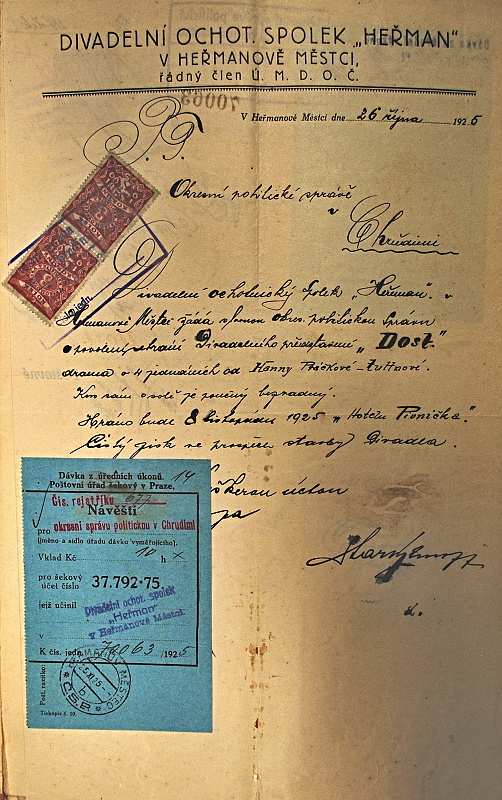 DIVADELNÍ OCHOT. SPOLEK „HEŘMAN"
V HEŘMANOVĚ MĚSTCI,
řádný člen Ú. M. D. O. Č.
70063
V Heřmanově Městci dne 26 října 1925
P. T.
Okresní politické správě
v
Chrudimi
Divadelní ochotnický spolek „Heřman". v
Heřmanově Městci žádá slavnou okres. politickou správu
o povolení sehrání Divadelního představení „Dost"
drama o 4 jednáních od
Kus sám o sobě je poučný bezvadný.
Hráno bude 8 listopadu 1925 „Hotelu Pivnička".
Čistý zisk ve prospěch stavby Divadla.
úctou
Dávka z úředních úkonů. 14
Poštovní úřad šekový v Praze.
Čís. rejstříku 677
Návěští
pro okresní správu politickou v Chrudimi
(jméno a sídlo úřadu dávku vyměřujícího).
Vklad Kč 10 h x
pro šekový
účet číslo 37.792-75
jejž učinil
Divadelní ochot. spolek
„Heřman"
v Heřmanově Městci.
v
K čís. jedn. 70063 /1925
Pošt. razítko:
HEŘMANŮV MĚSTEC
Č.S.P.
Tiskopis č. 10.